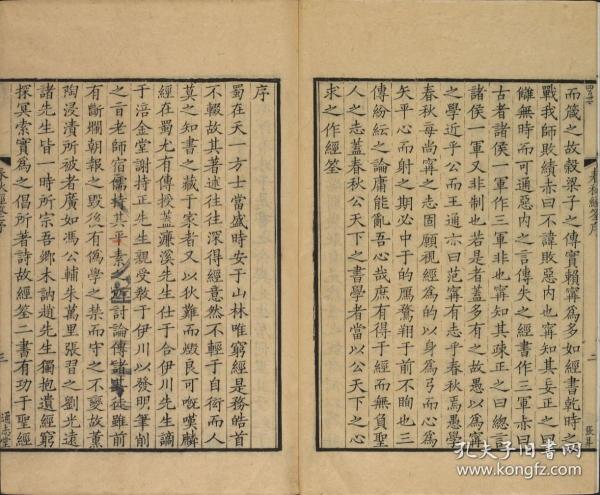 而箴之故穀梁子之傳實賴寗爲多如經書乾時之
戰我師敗績赤曰不諱敗惡内也寗知其妄正之曰
讎無時而可通惡内之言傳失之經書作三軍赤曰
古者諸侯一軍作三軍非也寗知其疎正之曰總言
諸侯一軍又非制也若是者蓋多有之故愚以爲寗
之學近乎公而王通亦曰范寗有志乎春秋焉愚學
春秋每尚寗之志固願視經爲的以身爲弓而心爲
矢平心而射之期必中于的鴈鶩翔于前不眴也三
傳紛紜之論庸能亂吾心哉庶有得于經而無負聖
人之志蓋春秋公天下之書學者當以公天下之心
求之作經筌
春秋經筌序
二
序
蜀在天一方士當盛時安于山林唯窮經是務皓首
不輟故其著述往往深得經意然不輕于自衒而人
莫之知書之藏于家者又以狄難而燬良可嘅嘆麟
經在蜀尤有傳授蓋濂溪先生仕于合伊川先生謫
于涪金堂謝持正先生親受教于伊川以發明筆削
之旨老師宿儒持其平素之討論傳諸其徒雖前
有斷爛朝報之毁後有僞學之禁而守之不變故薰
陶浸漬所被者廣如馮公輔朱萬里張習之劉光遠
諸先生皆一時所宗吾鄉木訥趙先生獨抱遺經窮
探冥索實爲之倡所著詩故經筌二書有功于聖經
春秋經筌序
三
通志堂
孔夫子旧书网
www.kongfz.com